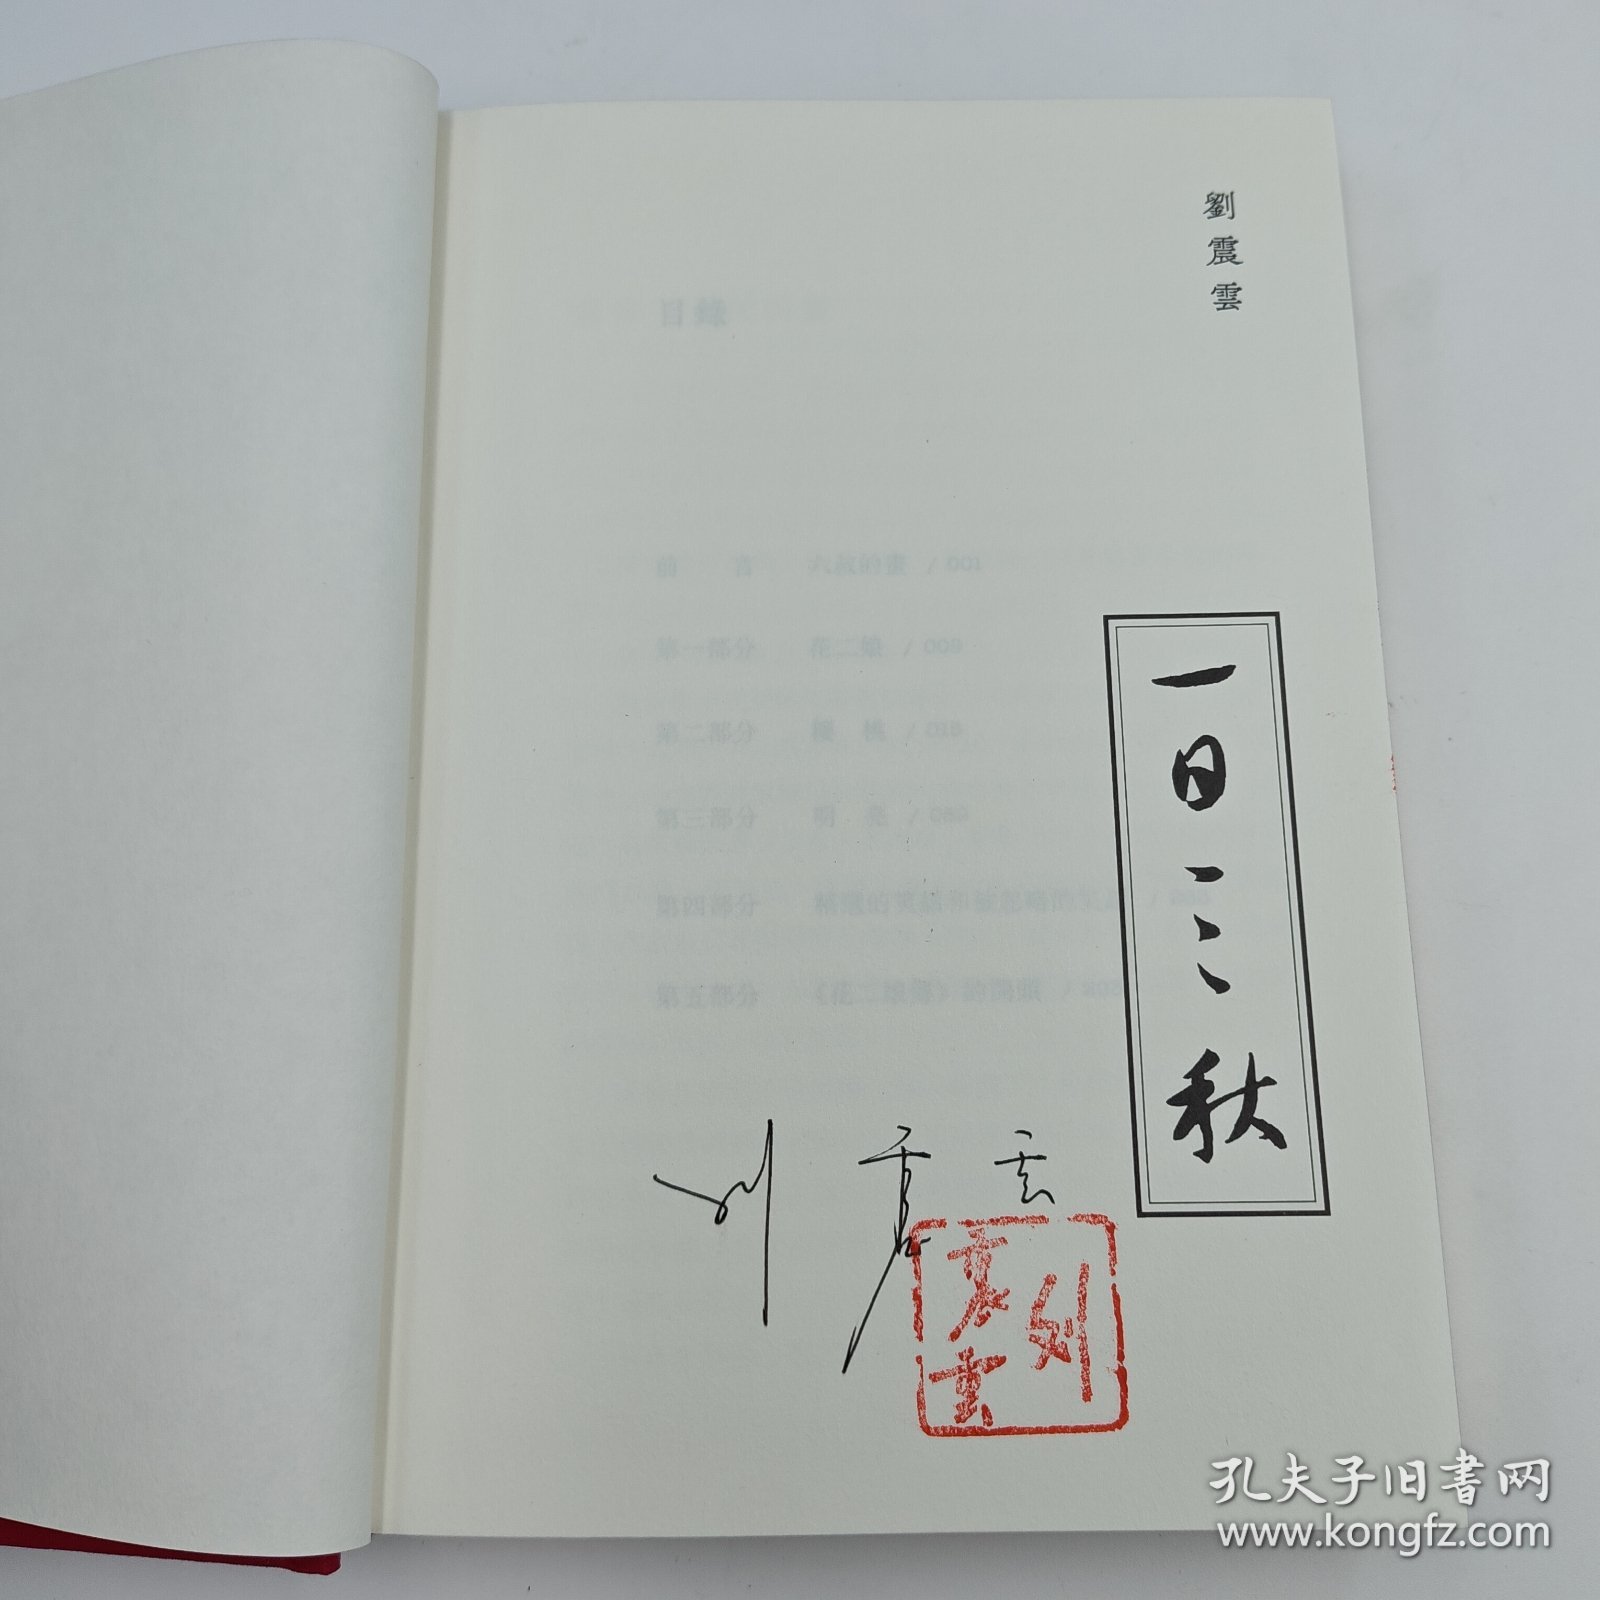 劉震雲
一日三秋
目錄
前言 六叔的畫 / 001
第一部分 花二娘 / 009
第二部分 櫻桃
第三部分 明亮
第四部分 精選的笑話和被忽略的笑話
第五部分 《花二娘傳》的開頭
刘震云
刘震云
孔夫子旧書网
www.kongfz.com